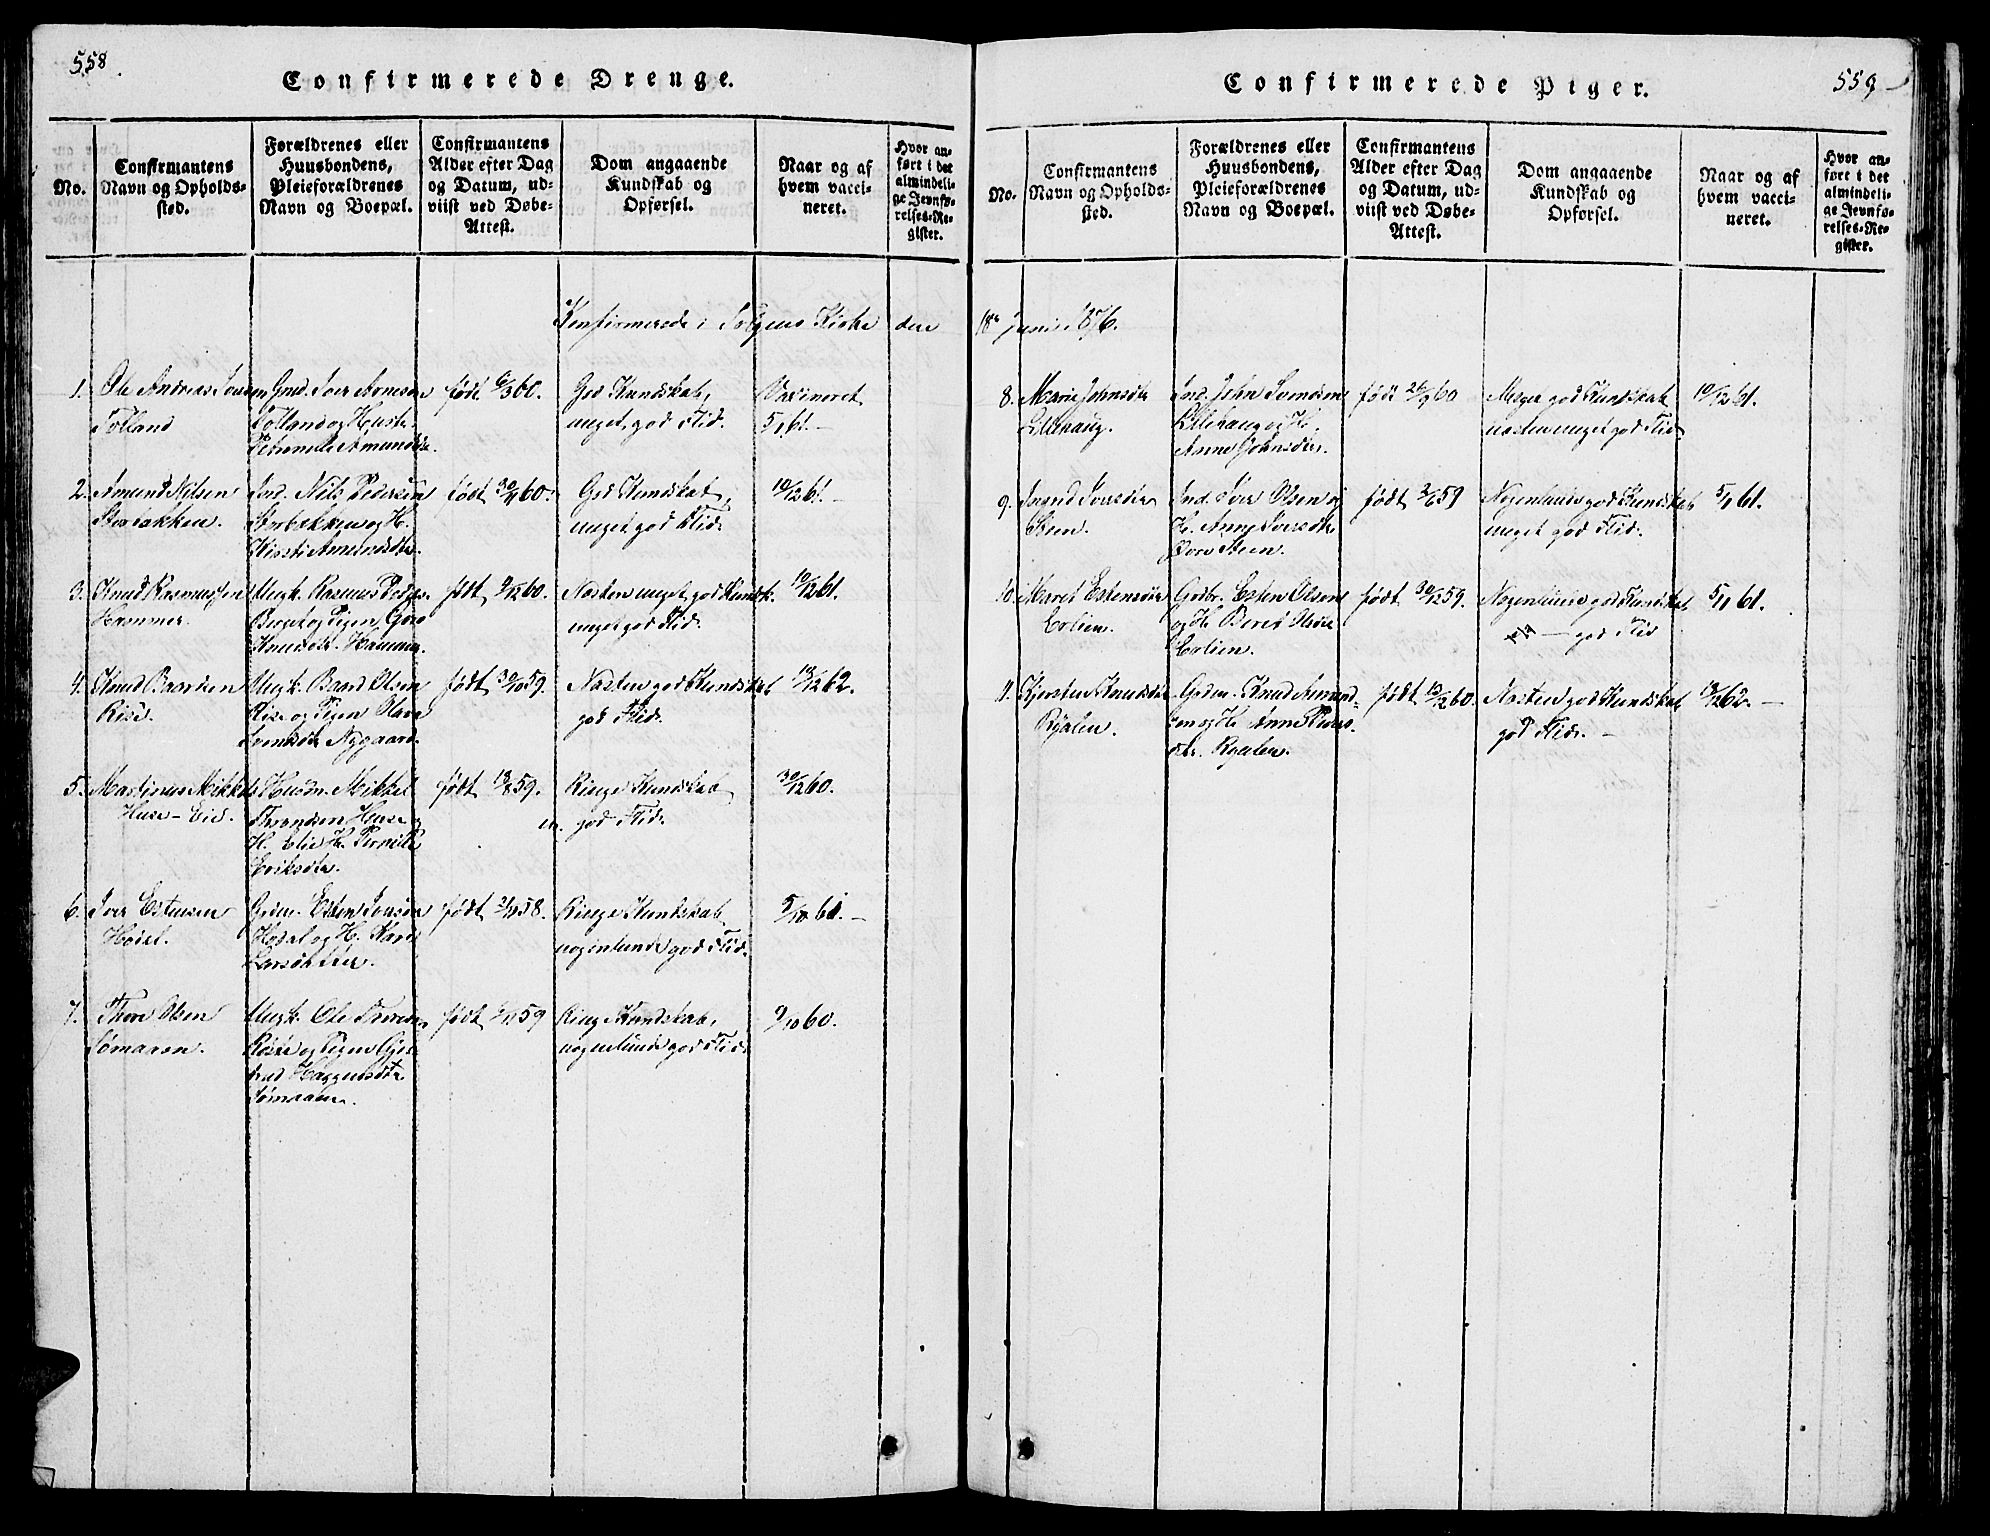 558
Confirmerede Drenge.
No.
Confirmantens
Navn og Opholds-
sted.
Forældrenes eller
Huusbondens,
Pleieforældrenes
Navn og Boepæl.
Confirmantens
Alder efter Dag
og Datum, ud-
viist ved Døbe-
Attest.
Dom angaaende
Kundskab og
Opførsel.
Naar og af
hvem vacci-
neret.
Hvor an-
ført i det
almindeli-
ge Jevnfø-
relses-Re-
gister.
Konfirmerede i Tolgens Kirke den
1. Ole Andreas Iversen
Tolland
Gmd. Iver Arnesen
Tolland og Hustr.
Petronelle Amundsdtr.
født 6/3 60.
God Kundskab,
meget god Flid.
Vaccineret
5/1 61. —
2. Amund Nilsen
Storbakken.
Ind. Nils Pedersen
Storbakken og H.
Kirsti Amundsdtr.
født 30/4 60.
God Kundskab,
meget god Flid.
10/12 61. —
3. Knud Rasmussen
Hammer.
Ungk. Rasmus Peders.
Berget og Pigen Guro
Knudsdtr. Hammer.
født 9/12 60.
Næsten meget god Kundsk.
meget god Flid.
10/12 61.
4. Knud Baardsen
Rise.
Ungk. Baard Olsen
Rise og Pigen Olava
Svendsdtr. Nygaard.
født 30/10 59.
Næsten god Kundskab
god Flid.
10/12 62.
5. Martinus Mikkels
Huse-Eid.
Husm. Mikkel
Throndsen Huse-
H. Pernille
Eriksdtr.
født 18/8 59.
Ringe Kundskab
en. god Flid.
30/12 60.
6. Iver Estensen
Hodal.
Gdm. Esten Jonsen
Hodal og H. Kari
Larsdatter.
født 2/11 58.
Ringe Kundskab
nogenlunde god Flid.
5/10 61. —
7. Thore Olsen
Sømaaen.
Ungk. Ole Thoresen
Røste og Pigen Gjer-
trud Haagensdtr
Sømaaen.
født 9/11 59
Ring Kundskab,
nogenlunde god Flid.
9/10 60.
559
Confirmerede Piger.
No.
Confirmantens
Navn og Opholds-
sted.
Forældrenes eller
Huusbondens,
Pleieforældrenes
Navn og Boepæl.
Confirmantens
Alder efter Dag
og Datum, ud-
viist ved Døbe-
Attest.
Dom angaaende
Kundskab og
Opførsel.
Naar og af
hvem vacci-
neret.
Hvor an-
ført i det
almindeli-
ge Jevnfø-
relses-Re-
gister.
18de Juni 1876.
8. Marie Johnsdtr
Lillehaug.
Ind. John Svendsen
Lillehaug og H.
Anne Johnsdtr.
født 26/9 60
Meget god Kundskab
næsten meget god Flid
10/12 61.
9. Ingrid Iversdtr
Steen.
Ind. Iver Olsen og
H. Anne Iversdtr
Øvre Steen.
født 3/6 59
Nogenlunde god Kundskab
meget god Flid.
5/1 61.
10. Maret Estensdtr
Erlien.
Gdbr. Esten Olsen
og H. Beret Olsdtr
Erlien.
født 30/12 59.
Nogenlunde god Kundskab
— god Flid
5/11 61.
11. Kjersten Knudsdtr
Ryalen.
Gdm. Knud Amund-
sen og H. Anne Peders-
dtr. Ryalen.
født 12/2 60.
Næsten god Kundskab
god Flid. —
10/12 62. —